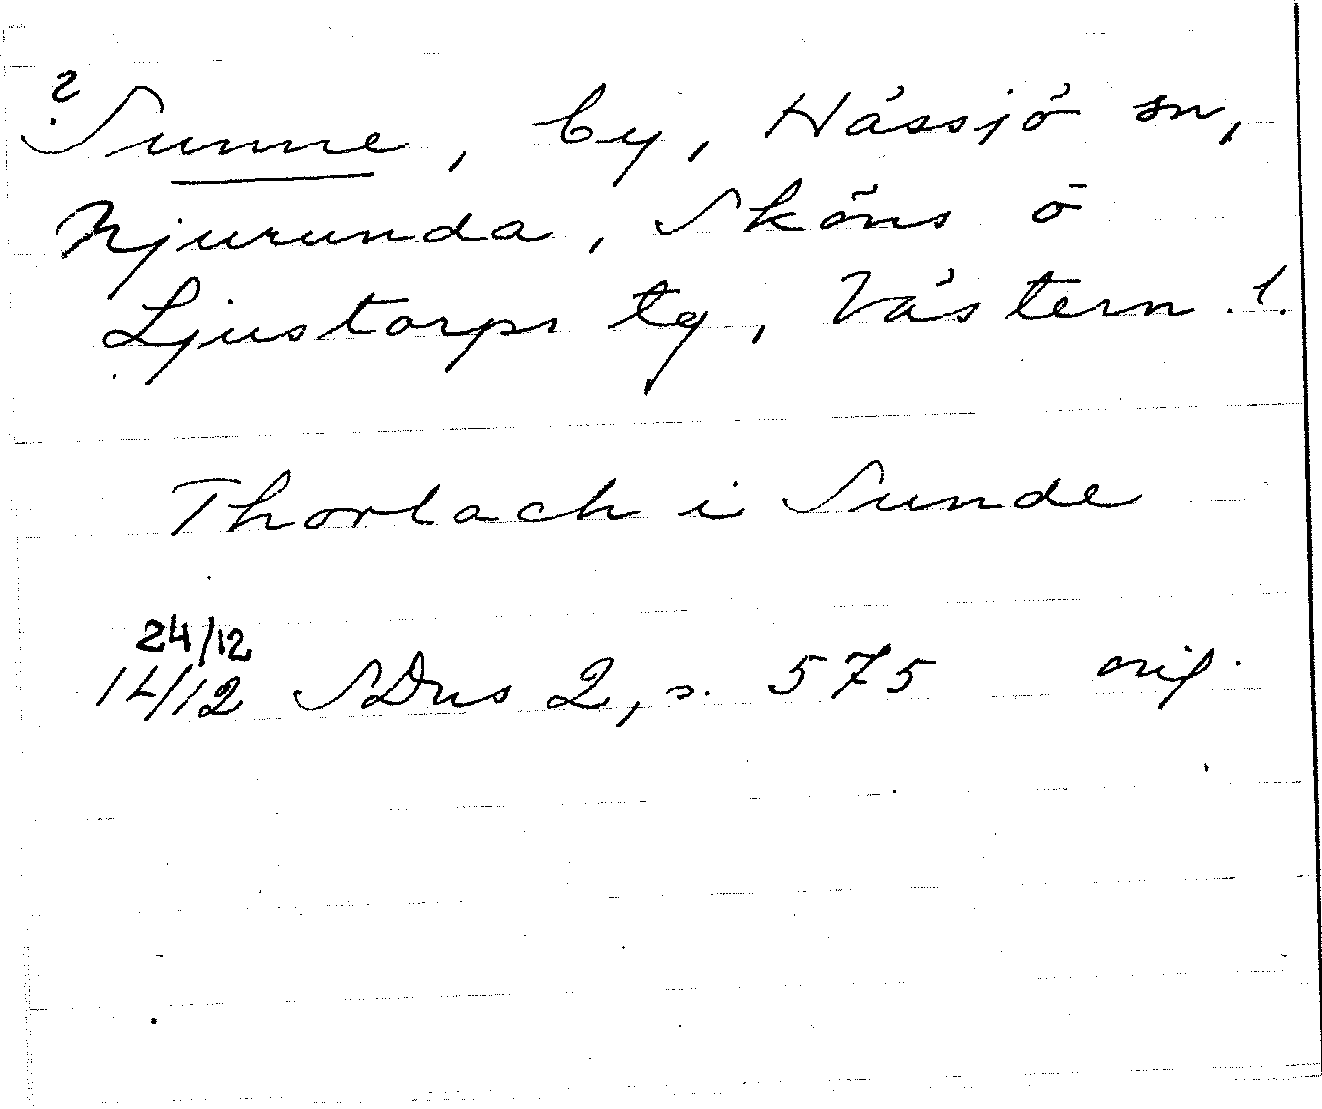 ? Sunne, by, Hässjö sn,
Njurunda, Sköns o
Ljustorps tg, Västern. l.
Thorlach i Sunde
24/12
14/12 SDns 2, s. 575 orig.